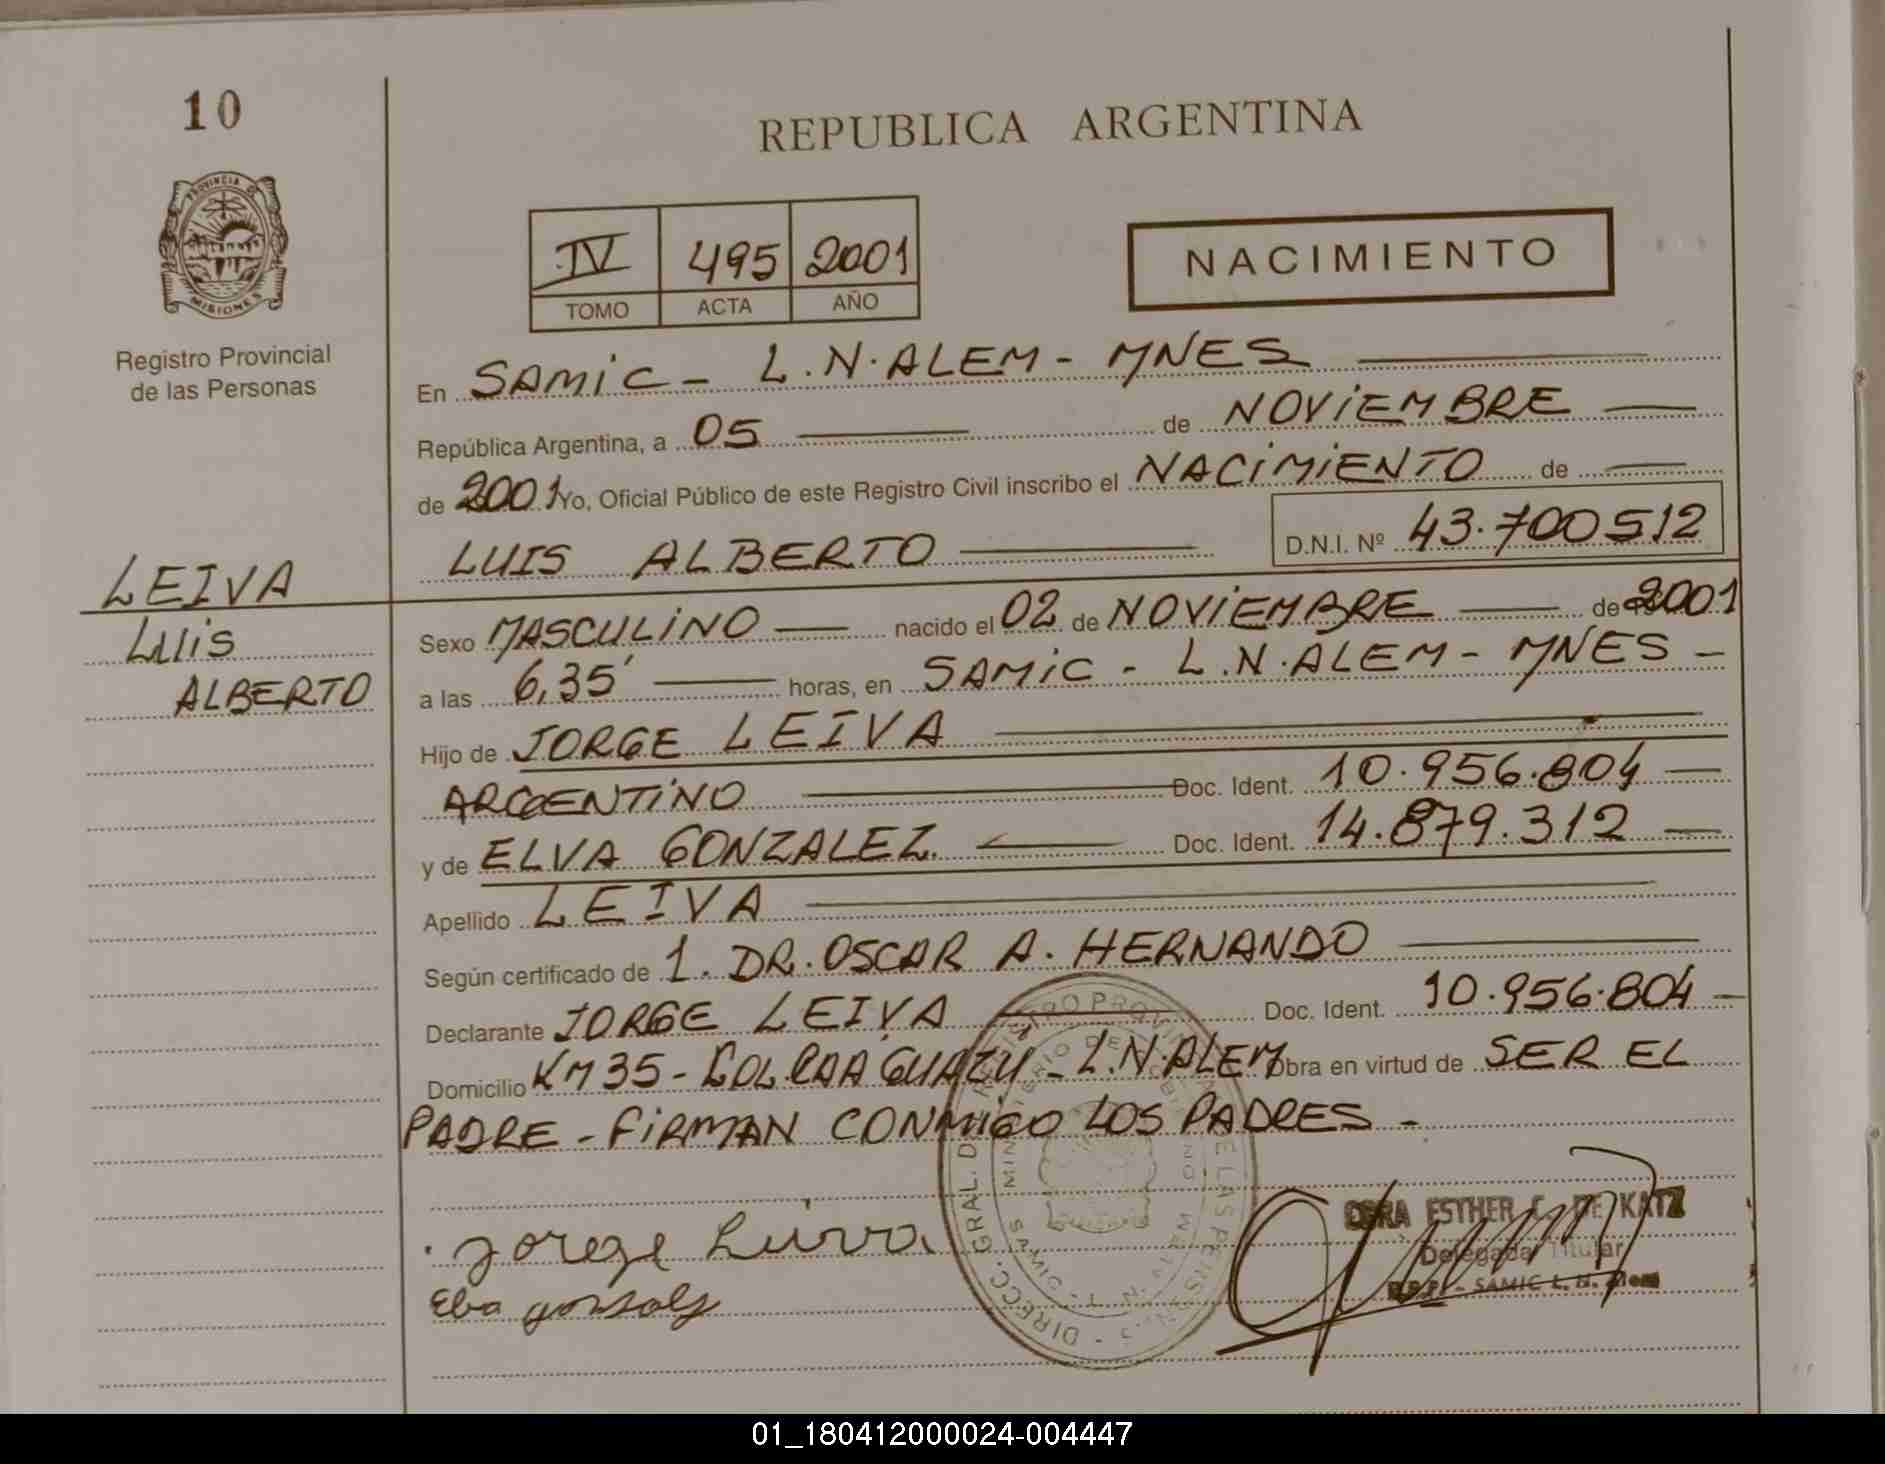 10
REPUBLICA ARGENTINA
PROVINCIA DE
MISIONES
Registro Provincial
de las Personas
IV 495 2001
TOMO ACTA AÑO
NACIMIENTO
En SAMIC - L.N.ALEM - MNES
República Argentina, a 05 de NOVIEMBRE
de 2001 Yo, Oficial Público de este Registro Civil inscribo el NACIMIENTO de
LUIS ALBERTO D.N.I. Nº 43.700512
LEIVA
LUIS
ALBERTO
Sexo MASCULINO nacido el 02 de NOVIEMBRE de 2001
a las 6,35' horas, en SAMIC - L.N.ALEM - MNES -
Hijo de JORGE LEIVA
ARGENTINO Doc. Ident. 10.956.804
y de ELVA GONZALEZ. Doc. Ident. 14.879.312
Apellido LEIVA
Según certificado de 1. DR. OSCAR A. HERNANDO
Declarante JORGE LEIVA Doc. Ident. 10.956.804
Domicilio KM35 - COL. CAA GUAZÚ - L.N.ALEM Obra en virtud de SER EL
PADRE - FIRMAN CONMIGO LOS PADRES -
Jorge
Elva
ESTHER C. DE KATZ
Delegada Titular
SAMIC L. N. Alem
01_180412000024-004447